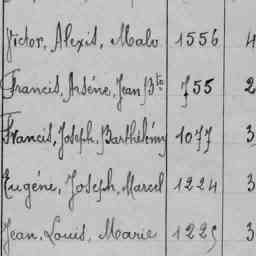 Victor, Alexis, Malo 1556 4
Francis, Arsène, Jean Bte 755 2
Francis, Joseph, Barthélémy 1077 3
Eugène, Joseph, Marcel 1224 3
Jean, Louis, Marie 1225 3